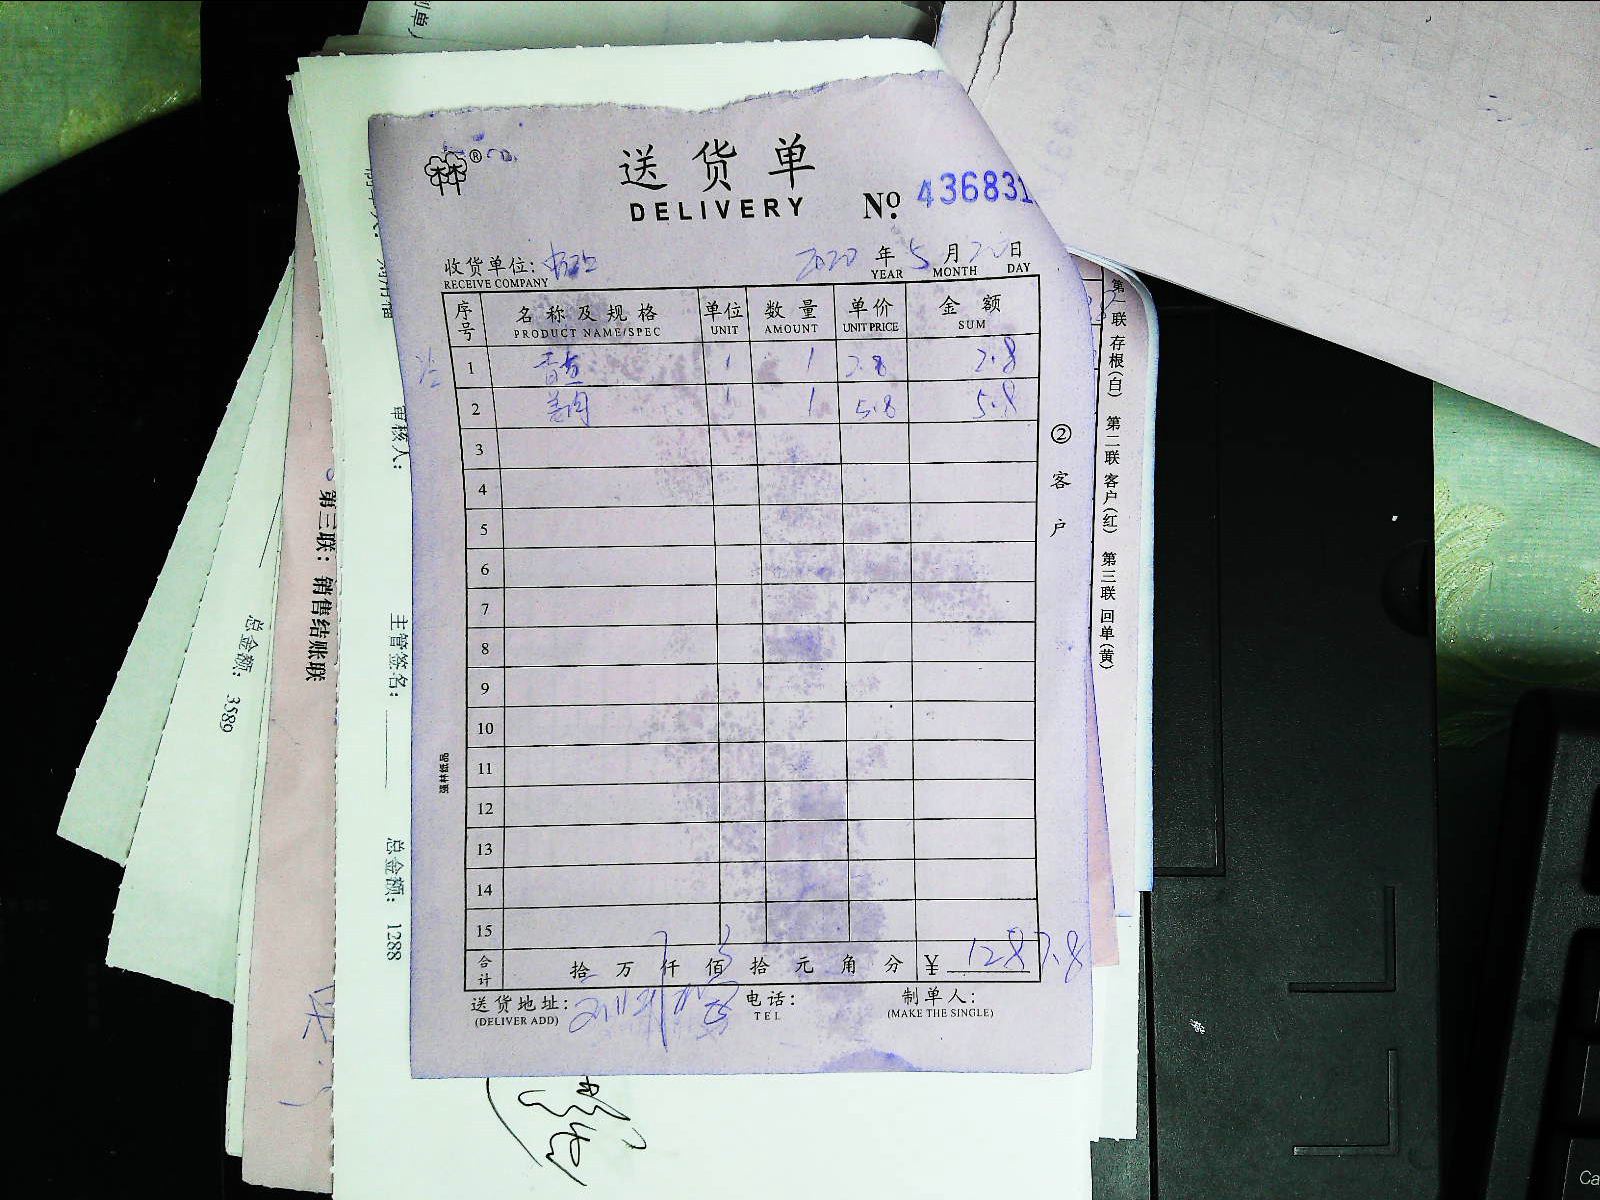 送货单
DELIVERY
No. 436831
收货单位:
RECEIVE COMPANY
2020 年 5 月 20 日
YEAR MONTH DAY
序号 名称及规格 单位 数量 单价 金额
PRODUCT NAME/SPEC UNIT AMOUNT UNIT PRICE SUM
1 1 1 2.8 2.8
2 1 1 5.8 5.8
3
4
5
6
7
8
9
10
11
12
13
14
15
合计 拾 万 仟 佰 拾 元 角 分 ¥ 128
送货地址: 电话: 制单人:
(DELIVER ADD) TEL (MAKE THE SINGLE)
② 客户
第一联 存根(白) 第二联 客户(红) 第三联 回单(黄)
强林纸品
审核人:
主管签名:
总金额: 1288
第三联: 销售结账联
总金额: 3580